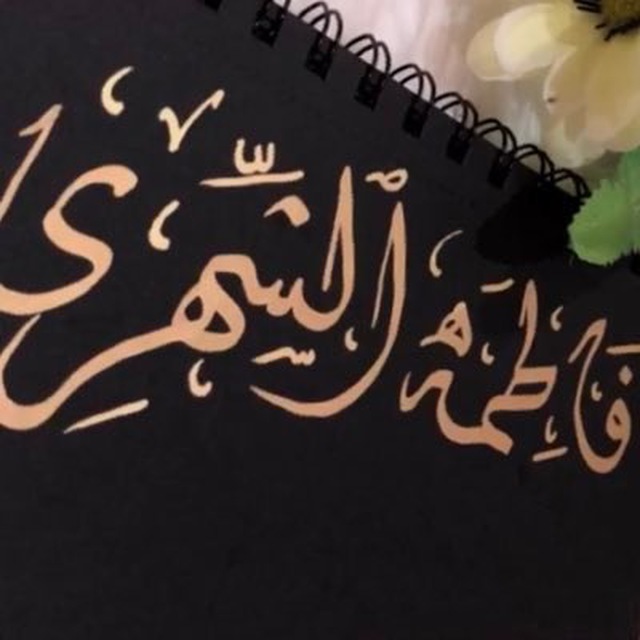 فاطمة الشهري